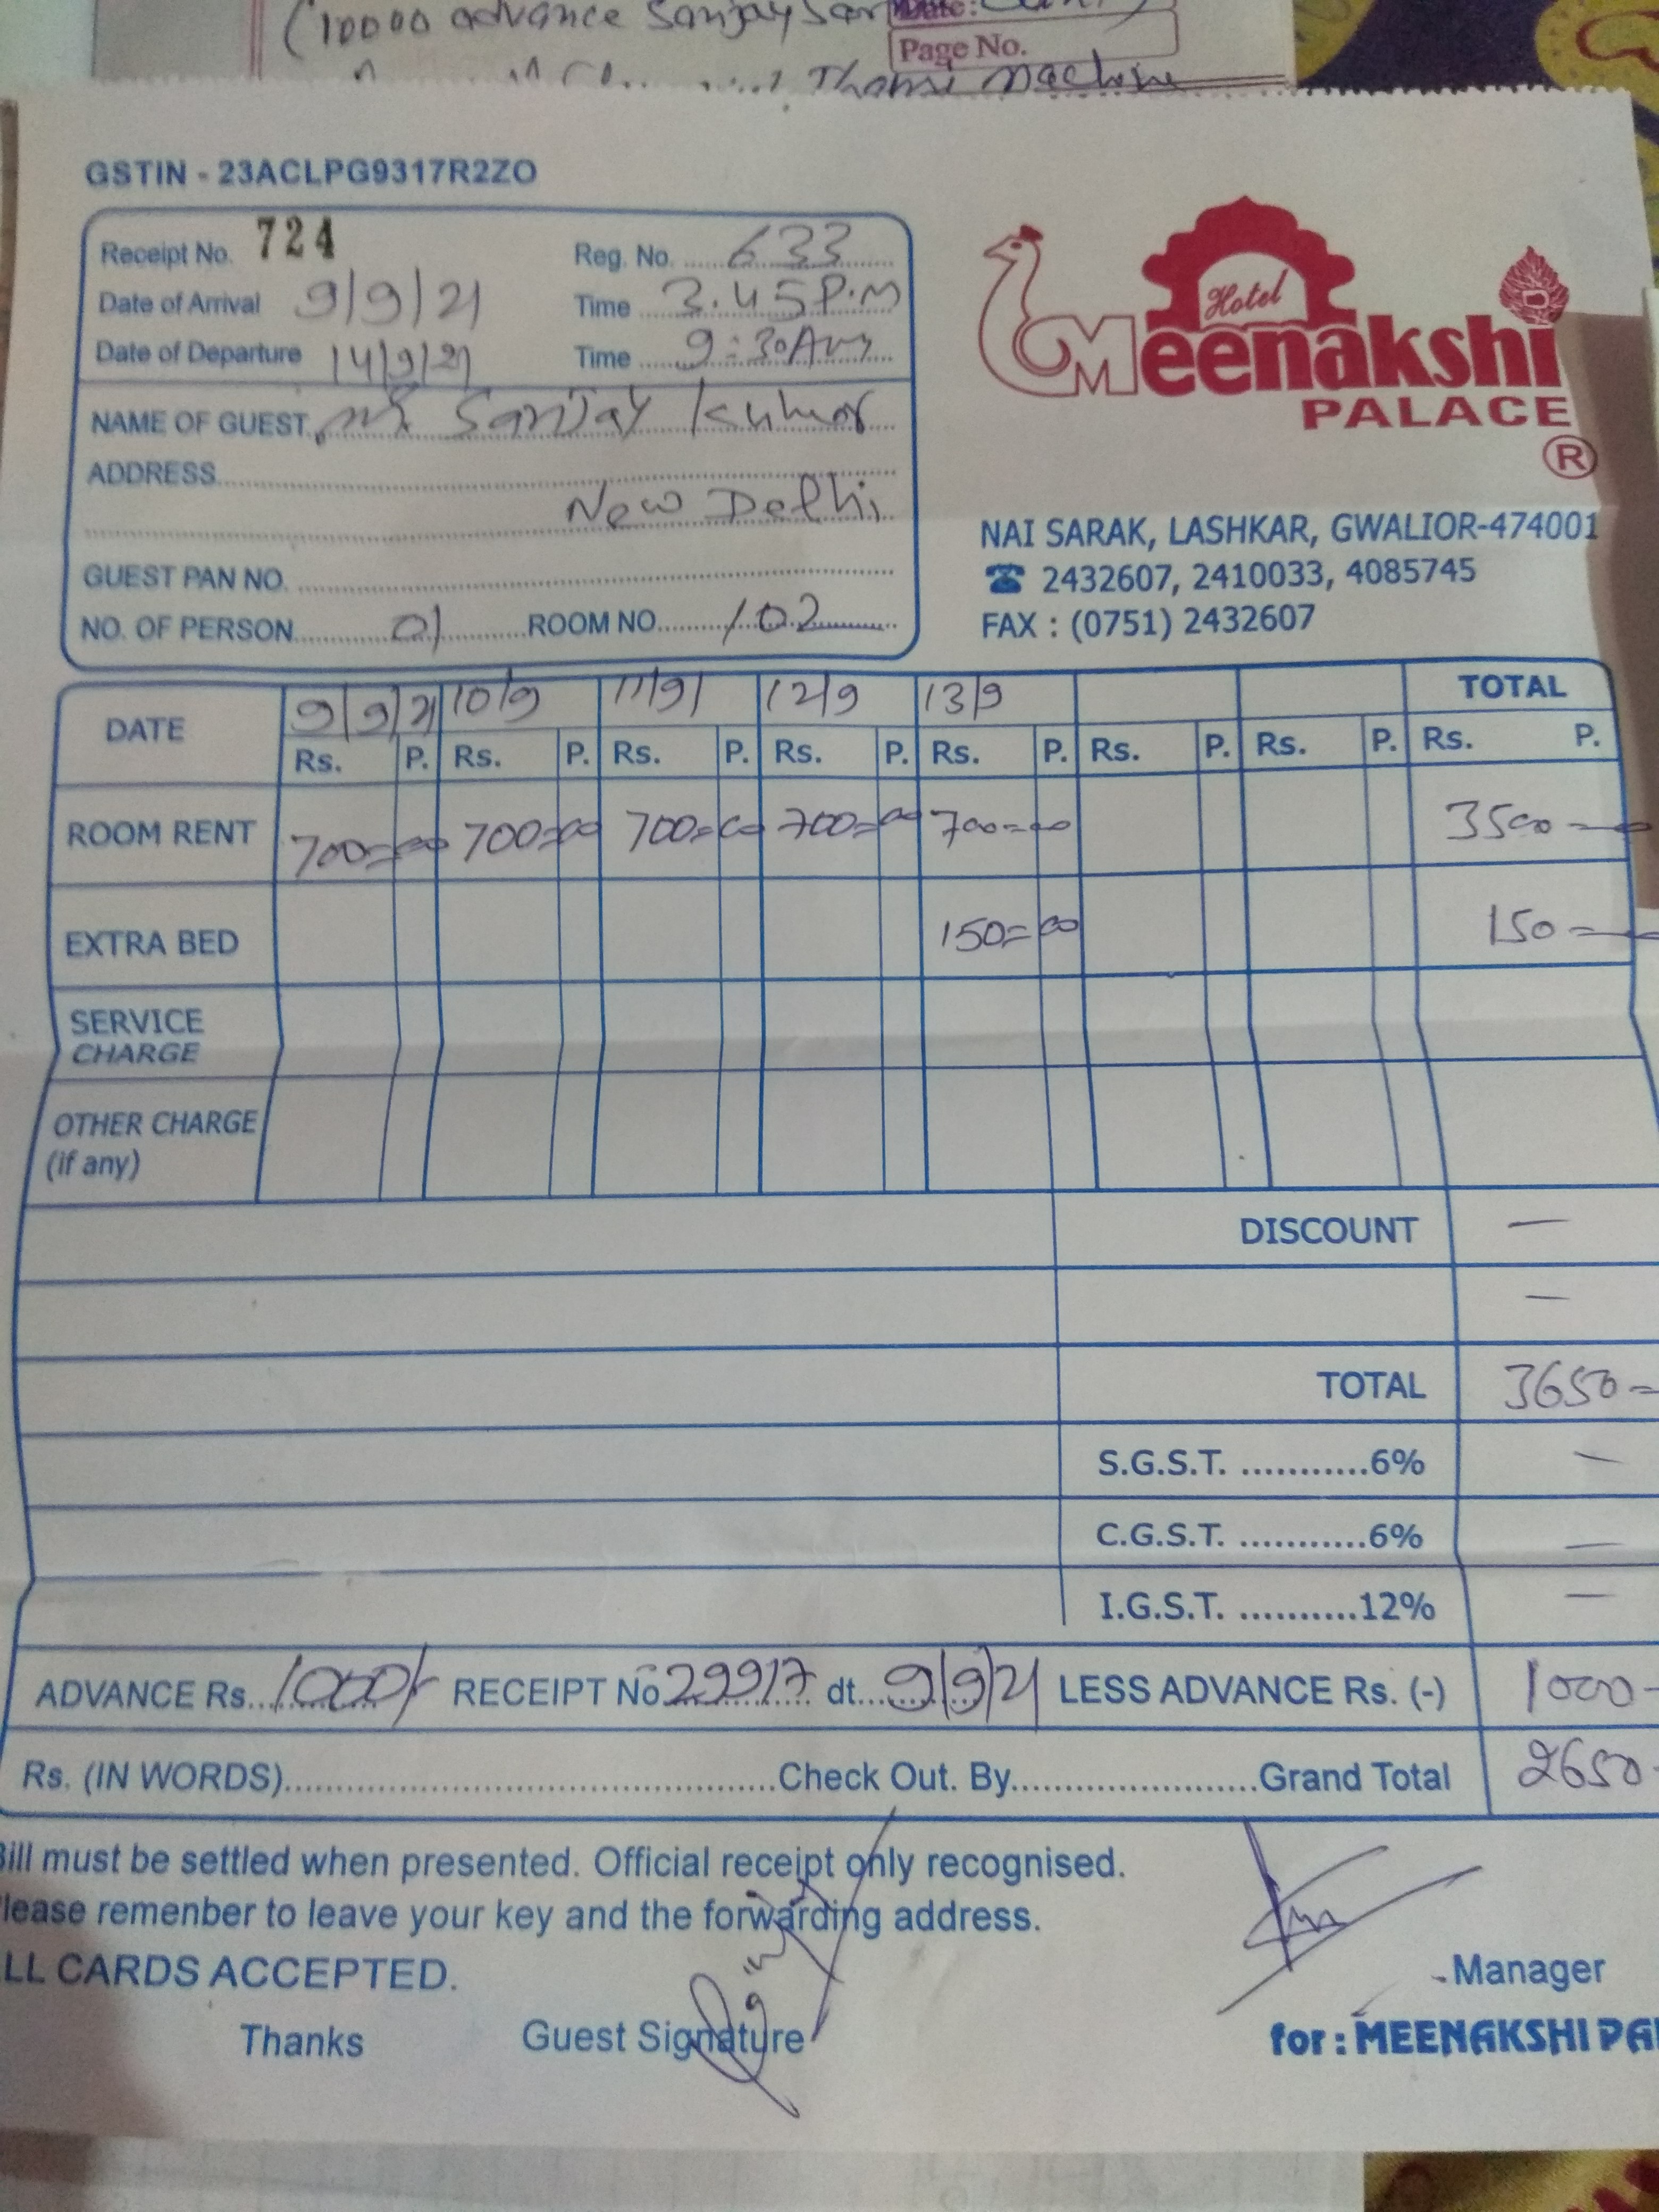 (10000 advance Sanjay Sar
Date:
Page No.
Machine
GSTIN - 23ACLPG9317R2ZO
Receipt No. 724 Reg. No. 633
Date of Arrival 9/9/21 Time 3.45 P.M
Date of Departure 14/9/21 Time 9:30 Am
NAME OF GUEST Mr Sanjay Kumar
ADDRESS
New Delhi
GUEST PAN NO.
NO. OF PERSON 01 ROOM NO. 102
Hotel
Meenakshi
PALACE
®
NAI SARAK, LASHKAR, GWALIOR-474001
☎ 2432607, 2410033, 4085745
FAX : (0751) 2432607
DATE 9/9/21 10/9 11/9/ 12/9 13/9 TOTAL
Rs. P. Rs. P. Rs. P. Rs. P. Rs. P. Rs. P. Rs. P. Rs. P.
ROOM RENT 700=00 700=00 700=00 700=00 700=00 3500—
EXTRA BED 150=00 150=
SERVICE
CHARGE
OTHER CHARGE
(if any)
DISCOUNT —
—
TOTAL 3650=
S.G.S.T. ...........6% —
C.G.S.T. ...........6% —
I.G.S.T. ...........12% —
ADVANCE Rs. 1000/- RECEIPT No 29917 dt. 9/9/21 LESS ADVANCE Rs. (-) 1000-
Rs. (IN WORDS)..........Check Out. By..........Grand Total 2650-
Bill must be settled when presented. Official receipt only recognised.
Please remenber to leave your key and the forwarding address.
ALL CARDS ACCEPTED.
Manager
Thanks Guest Signature for : MEENAKSHI PA